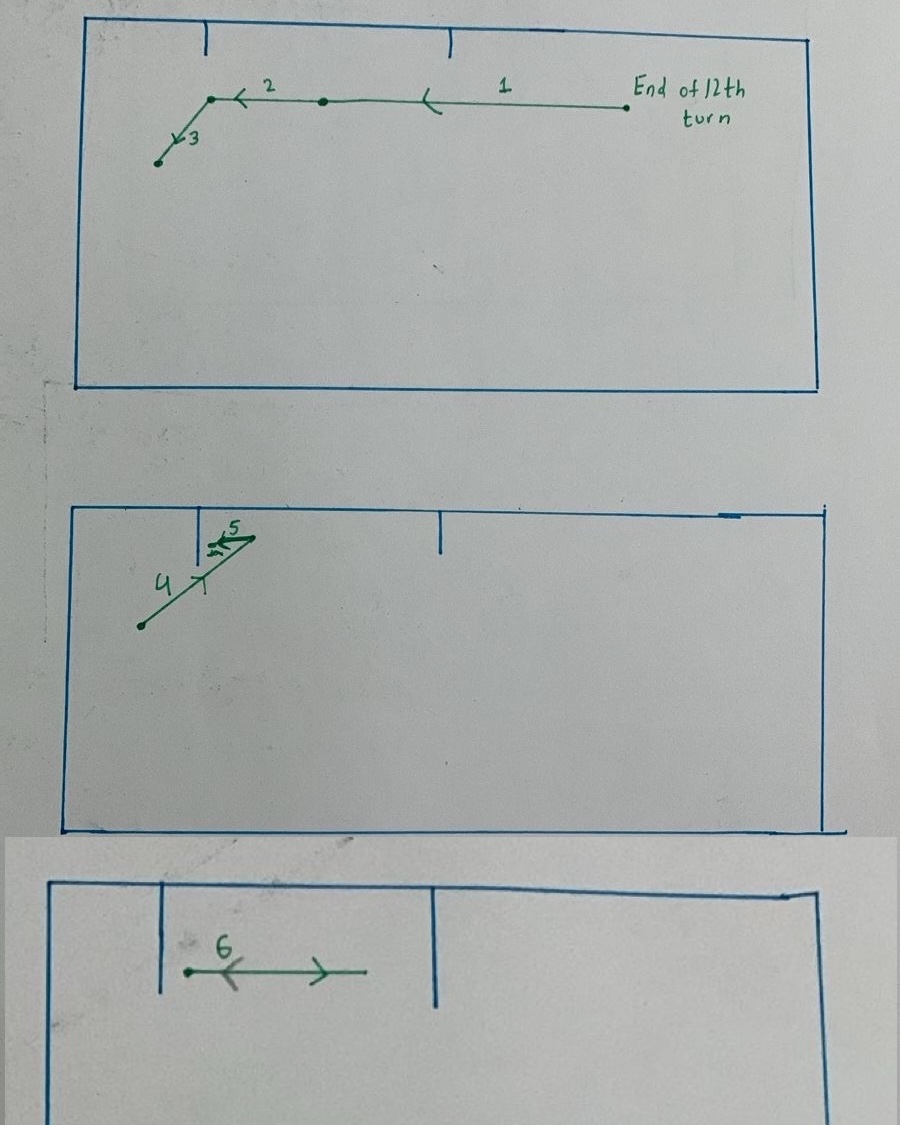 2
1
End of 12th
turn
3
5
4
6